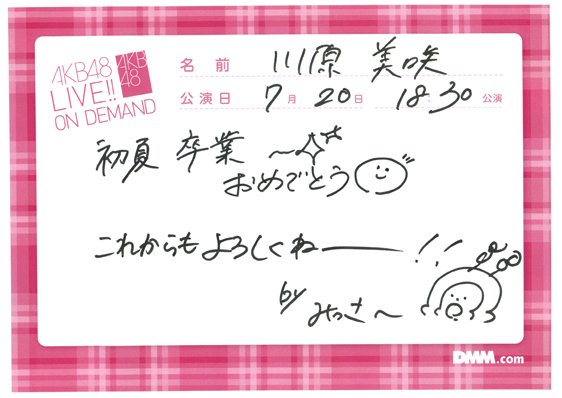 AKB48
LIVE!!
ON DEMAND
AKB
48
名前 川原 美咲
公演日 7月20日 18:30 公演
初夏 卒業 〜
おめでとう
これからもよろしくねー!!
by みっさ〜
DMM.com